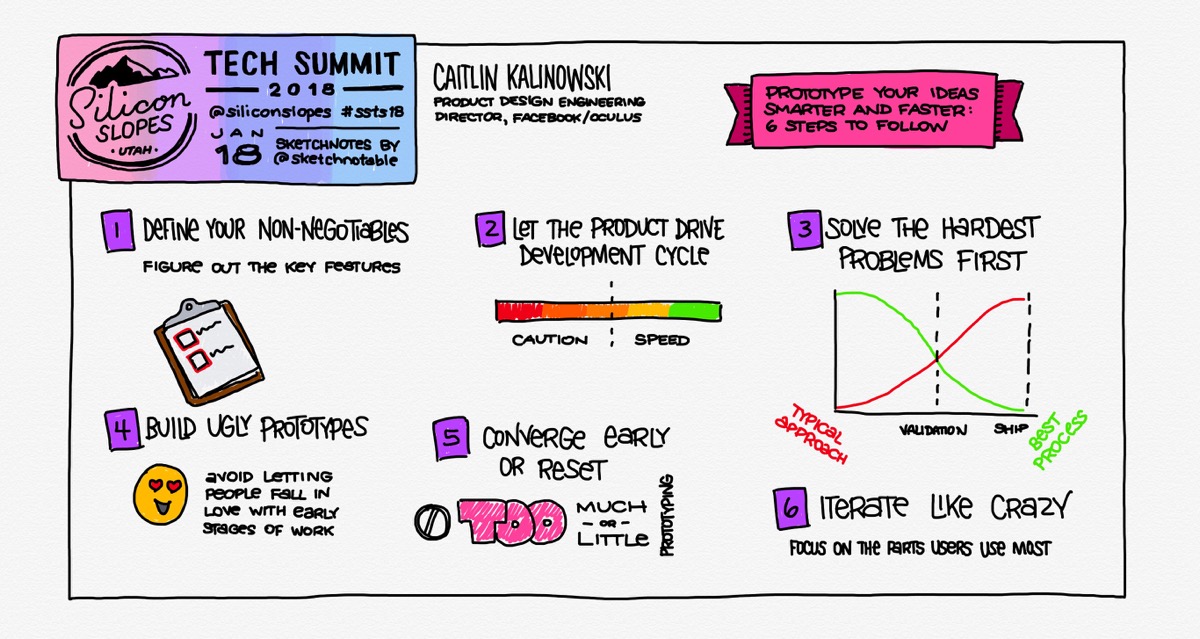 Silicon
SLOPES
· UTAH ·
TECH SUMMIT
2018
@siliconslopes #ssts18
JAN
18
SKETCHNOTES BY
@sketchnotable
CAITLIN KALINOWSKI
PRODUCT DESIGN ENGINEERING
DIRECTOR, FACEBOOK/OCULUS
PROTOTYPE YOUR IDEAS
SMARTER AND FASTER:
6 STEPS TO FOLLOW
1 DEFINE YOUR NON-NEGOTIABLES
FIGURE OUT THE KEY FEATURES
2 LET THE PRODUCT DRIVE
DEVELOPMENT CYCLE
CAUTION
SPEED
3 SOLVE THE HARDEST
PROBLEMS FIRST
TYPICAL
APPROACH
VALIDATION
SHIP
BEST
PROCESS
4 BUILD UGLY PROTOTYPES
AVOID LETTING
PEOPLE FALL IN
LOVE WITH EARLY
STAGES OF WORK
5 CONVERGE EARLY
OR RESET
TOO
MUCH
- OR -
LITTLE
PROTOTYPING
6 ITERATE LIKE CRAZY
FOCUS ON THE PARTS USERS USE MOST